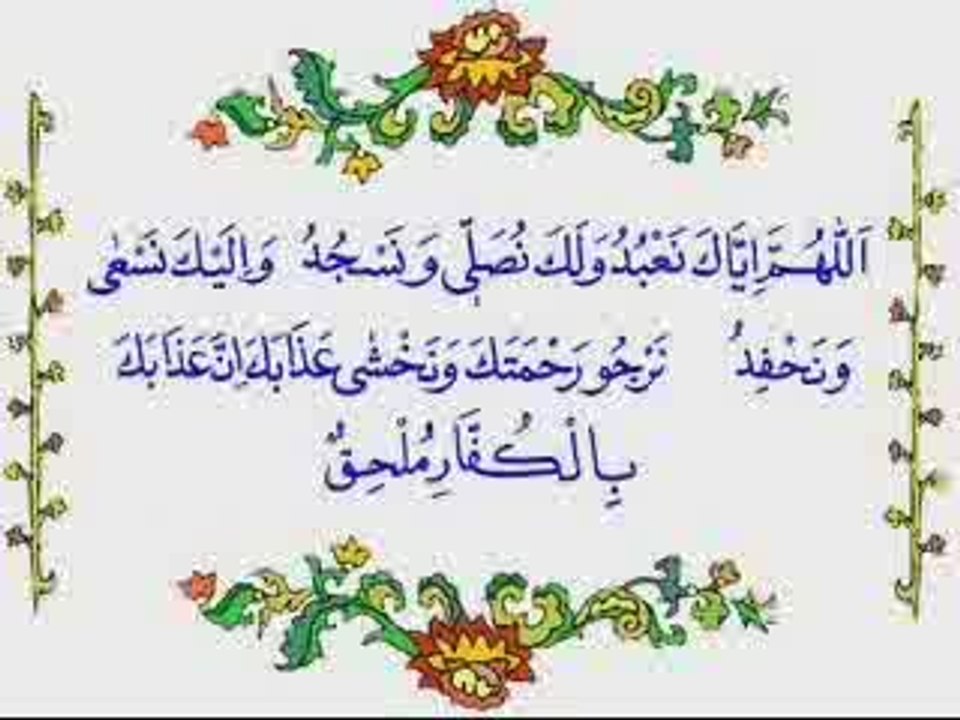 اَللّٰهُمَّ اِيَّاكَ نَعْبُدُ وَلَكَ نُصَلِّي وَنَسْجُدُ وَاِلَيْكَ نَسْعٰى
وَنَحْفِدُ نَرْجُو رَحْمَتَكَ وَنَخْشٰى عَذَابَكَ اِنَّ عَذَابَكَ
بِالْكُفَّارِ مُلْحِقٌ